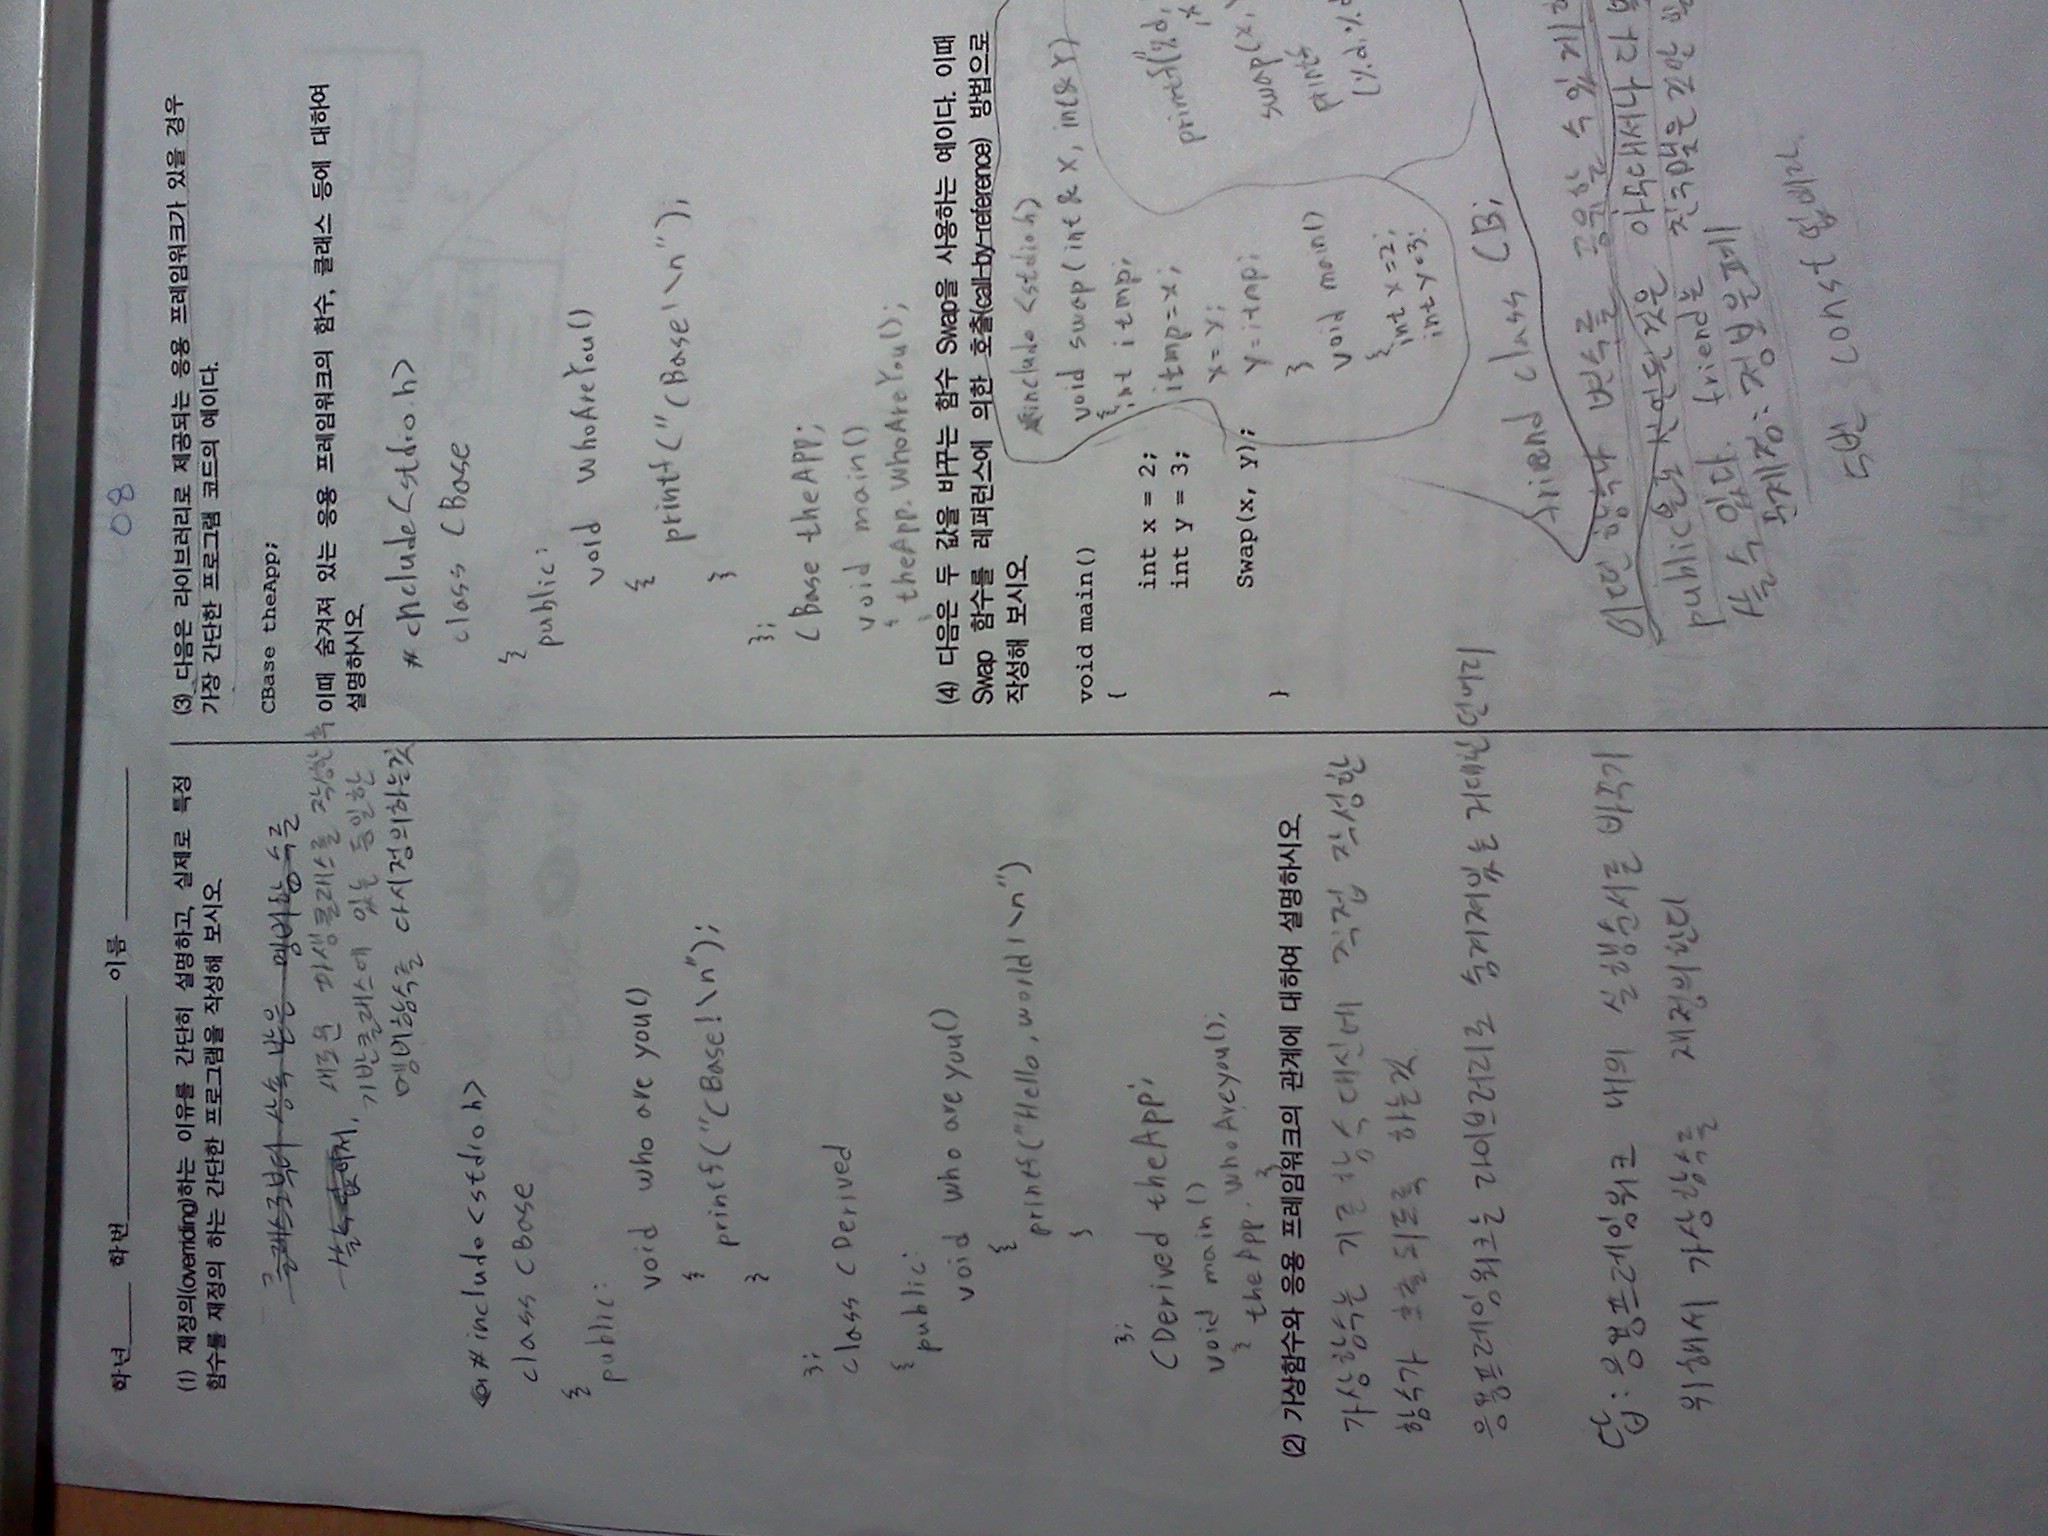 학년 학번 이름
08
(1) 재정의(overriding)하는 이유를 간단히 설명하고, 실제로 특정
함수를 재정의 하는 간단한 프로그램을 작성해 보시오.
클래스로부터 상속 받은 멤버함수를
쓸수 없어서, 새로운 파생클래스를 작성한 후
기반클래스에 있는 동일한
멤버함수를 다시정의하는것
#include<stdio.h>
class CBase
{
public:
void who are you()
{
printf("CBase!\n");
}
};
class CDerived
{
public:
void who are you()
{
printf("Hello, world!\n")
}
};
CDerived theApp;
void main()
{
theApp. whoAreyou();
}
(2) 가상함수와 응용 프레임워크의 관계에 대하여 설명하시오.
가상함수는 기존함수대신에 직접 작성한
함수가 호출되도록 하는것
응용프레임워크는 라이브러리로 숨겨져있는 거대한 덩어리
답: 응용프레임워크 내의 실행순서를 바꾸기
위해서 가상함수를 재정의한다
(3) 다음은 라이브러리로 제공되는 응용 프레임워크가 있을 경우
가장 간단한 프로그램 코드의 예이다.
CBase theApp;
이때 숨겨져 있는 응용 프레임워크의 함수, 클래스 등에 대하여
설명하시오.
#include<stdio.h>
class CBase
{
public:
void WhoAreYou()
{
printf("CBase!\n");
}
};
CBase theApp;
void main()
{ theApp. WhoAreYou();
(4) 다음은 두 값을 바꾸는 함수 Swap을 사용하는 예이다. 이때
Swap 함수를 레퍼런스에 의한 호출(call-by-reference) 방법으로
작성해 보시오.
void main()
{
int x = 2;
int y = 3;
Swap(x, y);
}
#include <stdio.h>
void swap(int& x, int& Y)
{
int itmp;
itmp=x;
x=Y;
Y=itmp;
}
void main()
{
int x=2;
int y=3;
printf("%d,
,x
swap(x,
printf
(%d,%d
friend class CB;
어떤 함수나 변수를 공유할 수 있게
public으로 선언된 것은 아무대서나 다
쓸 수 있다. friend는 친구맺은 것만
문제점: 정보은폐
5번 const 없애라.